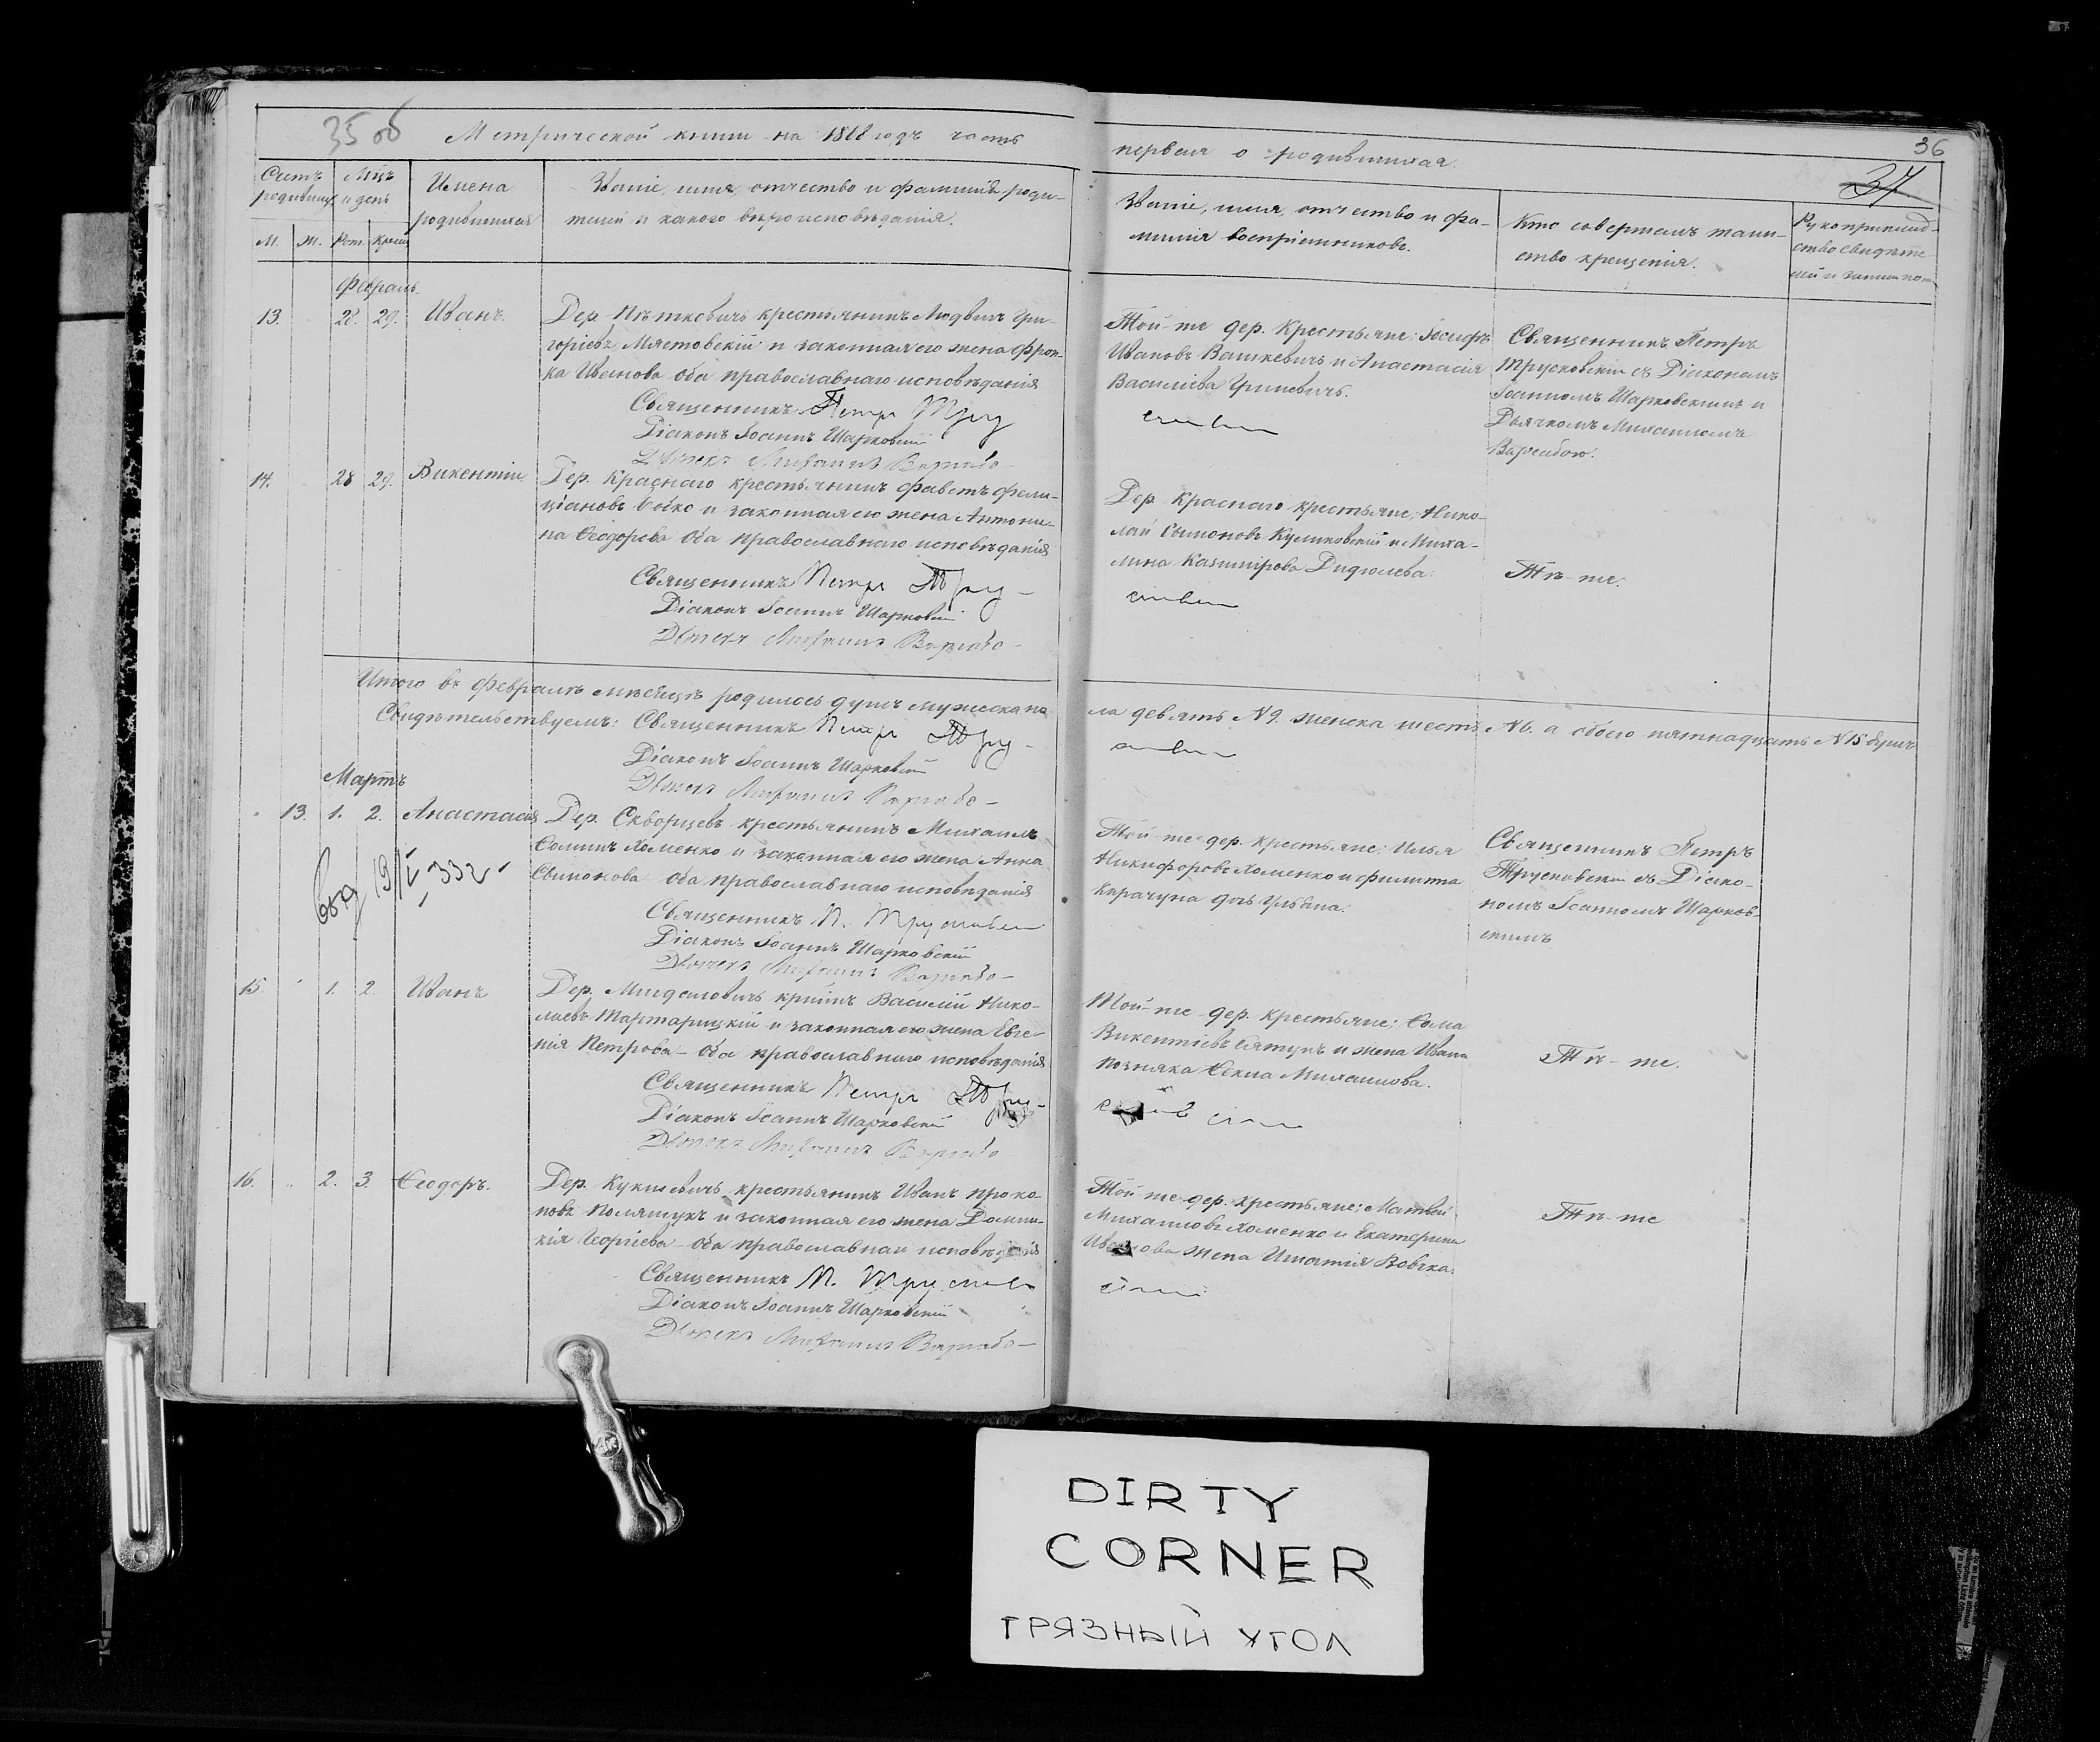 35 об
Метрической книги на 1888 годъ часть
первая о родившихся.
36
37
Счетъ родившихся
Мцъ и день
Имена родившихся
Званіе, имя, отчество и фамилія роди-
телей и какого вѣроисповѣданія.
Званіе, имя, отчество и фа-
милія воспріемниковъ.
Кто совершалъ таин-
ство крещенія.
Рукоприклад-
ство свидѣте-
лей
М. Ж. Рож. Крещ.
Февраль.
13. 28. 29. Иванъ.
Дер. Пѣтковичъ крестьянинъ Людвигъ Гри-
горіевъ и законная его жена Фран-
ка Иванова оба православнаго исповѣданія
Священникъ Петръ
Діаконъ Іоаннъ Шарковскій
Дьячекъ Михаилъ
Той-же дер. Крестьяне: Іосифъ
Ивановъ Вашкевичъ и Анастасія
Василіева Гриневичъ.
Священникъ Петръ
Трусковскій съ Діакономъ
Іоанномъ Шарковскимъ и
Дьячкомъ Михаиломъ
14. 28 29. Викентій
Дер. Краснаго крестьянинъ
и законная его жена Антони-
на Ѳеодорова оба православнаго исповѣданія
Священникъ Петръ
Діаконъ Іоаннъ Шарковскій
Дьячекъ Михаилъ
Дер. Краснаго крестьяне: Нико-
лай Сымоновъ Куликовскій и Миха-
лина Казимірова
Тѣ-же.
Итого въ Февралѣ мѣсяцѣ родилось душъ мужеска по-
ла девять №9. женска шесть №6. а обоего пятнадцать №15 душъ
Свидѣтельствуемъ: Священникъ Петръ
Діаконъ Іоаннъ Шарковскій
Дьячекъ Михаилъ
Мартъ
13. 1. 2. Анастасія
Дер. Скворцевъ крестьянинъ Михаилъ
Хоменко и законная его жена Анна
Сымонова оба православнаго исповѣданія
Священникъ П. Трусковскій
Діаконъ Іоаннъ Шарковскій
Дьячекъ Михаилъ
Той-же дер. крестьяне: Илья
Никифоровъ Хоменко и Филиппа
Карачуна дочь Ульяна.
Священникъ Петръ
Трусковскій съ Діако-
номъ Іоанномъ Шарков-
скимъ
15. 1. 2. Иванъ
Дер. крестьянинъ Василій Нико-
лаевъ и законная его жена Евге-
нія Петрова оба православнаго исповѣданія
Священникъ Петръ
Діаконъ Іоаннъ Шарковскій
Дьячекъ Михаилъ
Той-же дер. Крестьяне: Ѳома
Викентіевъ и жена Ивана
Позняка Ѳекла Михаилова.
Тѣ-же.
16. 2. 3. Ѳеодоръ.
Дер. Кукшевичъ крестьянинъ Иванъ Проко-
повъ Полящукъ и законная его жена Домни-
кія Георгіева оба православнаго исповѣданія
Священникъ П.
Діаконъ Іоаннъ Шарковскій
Дьячекъ Михаилъ
Той-же дер. крестьяне: Матвей
Михаиловъ Хоменко и Екатерина
Иванова жена Игнатія
Тѣ-же
DIRTY
CORNER
ГРЯЗНЫЙ УГОЛ